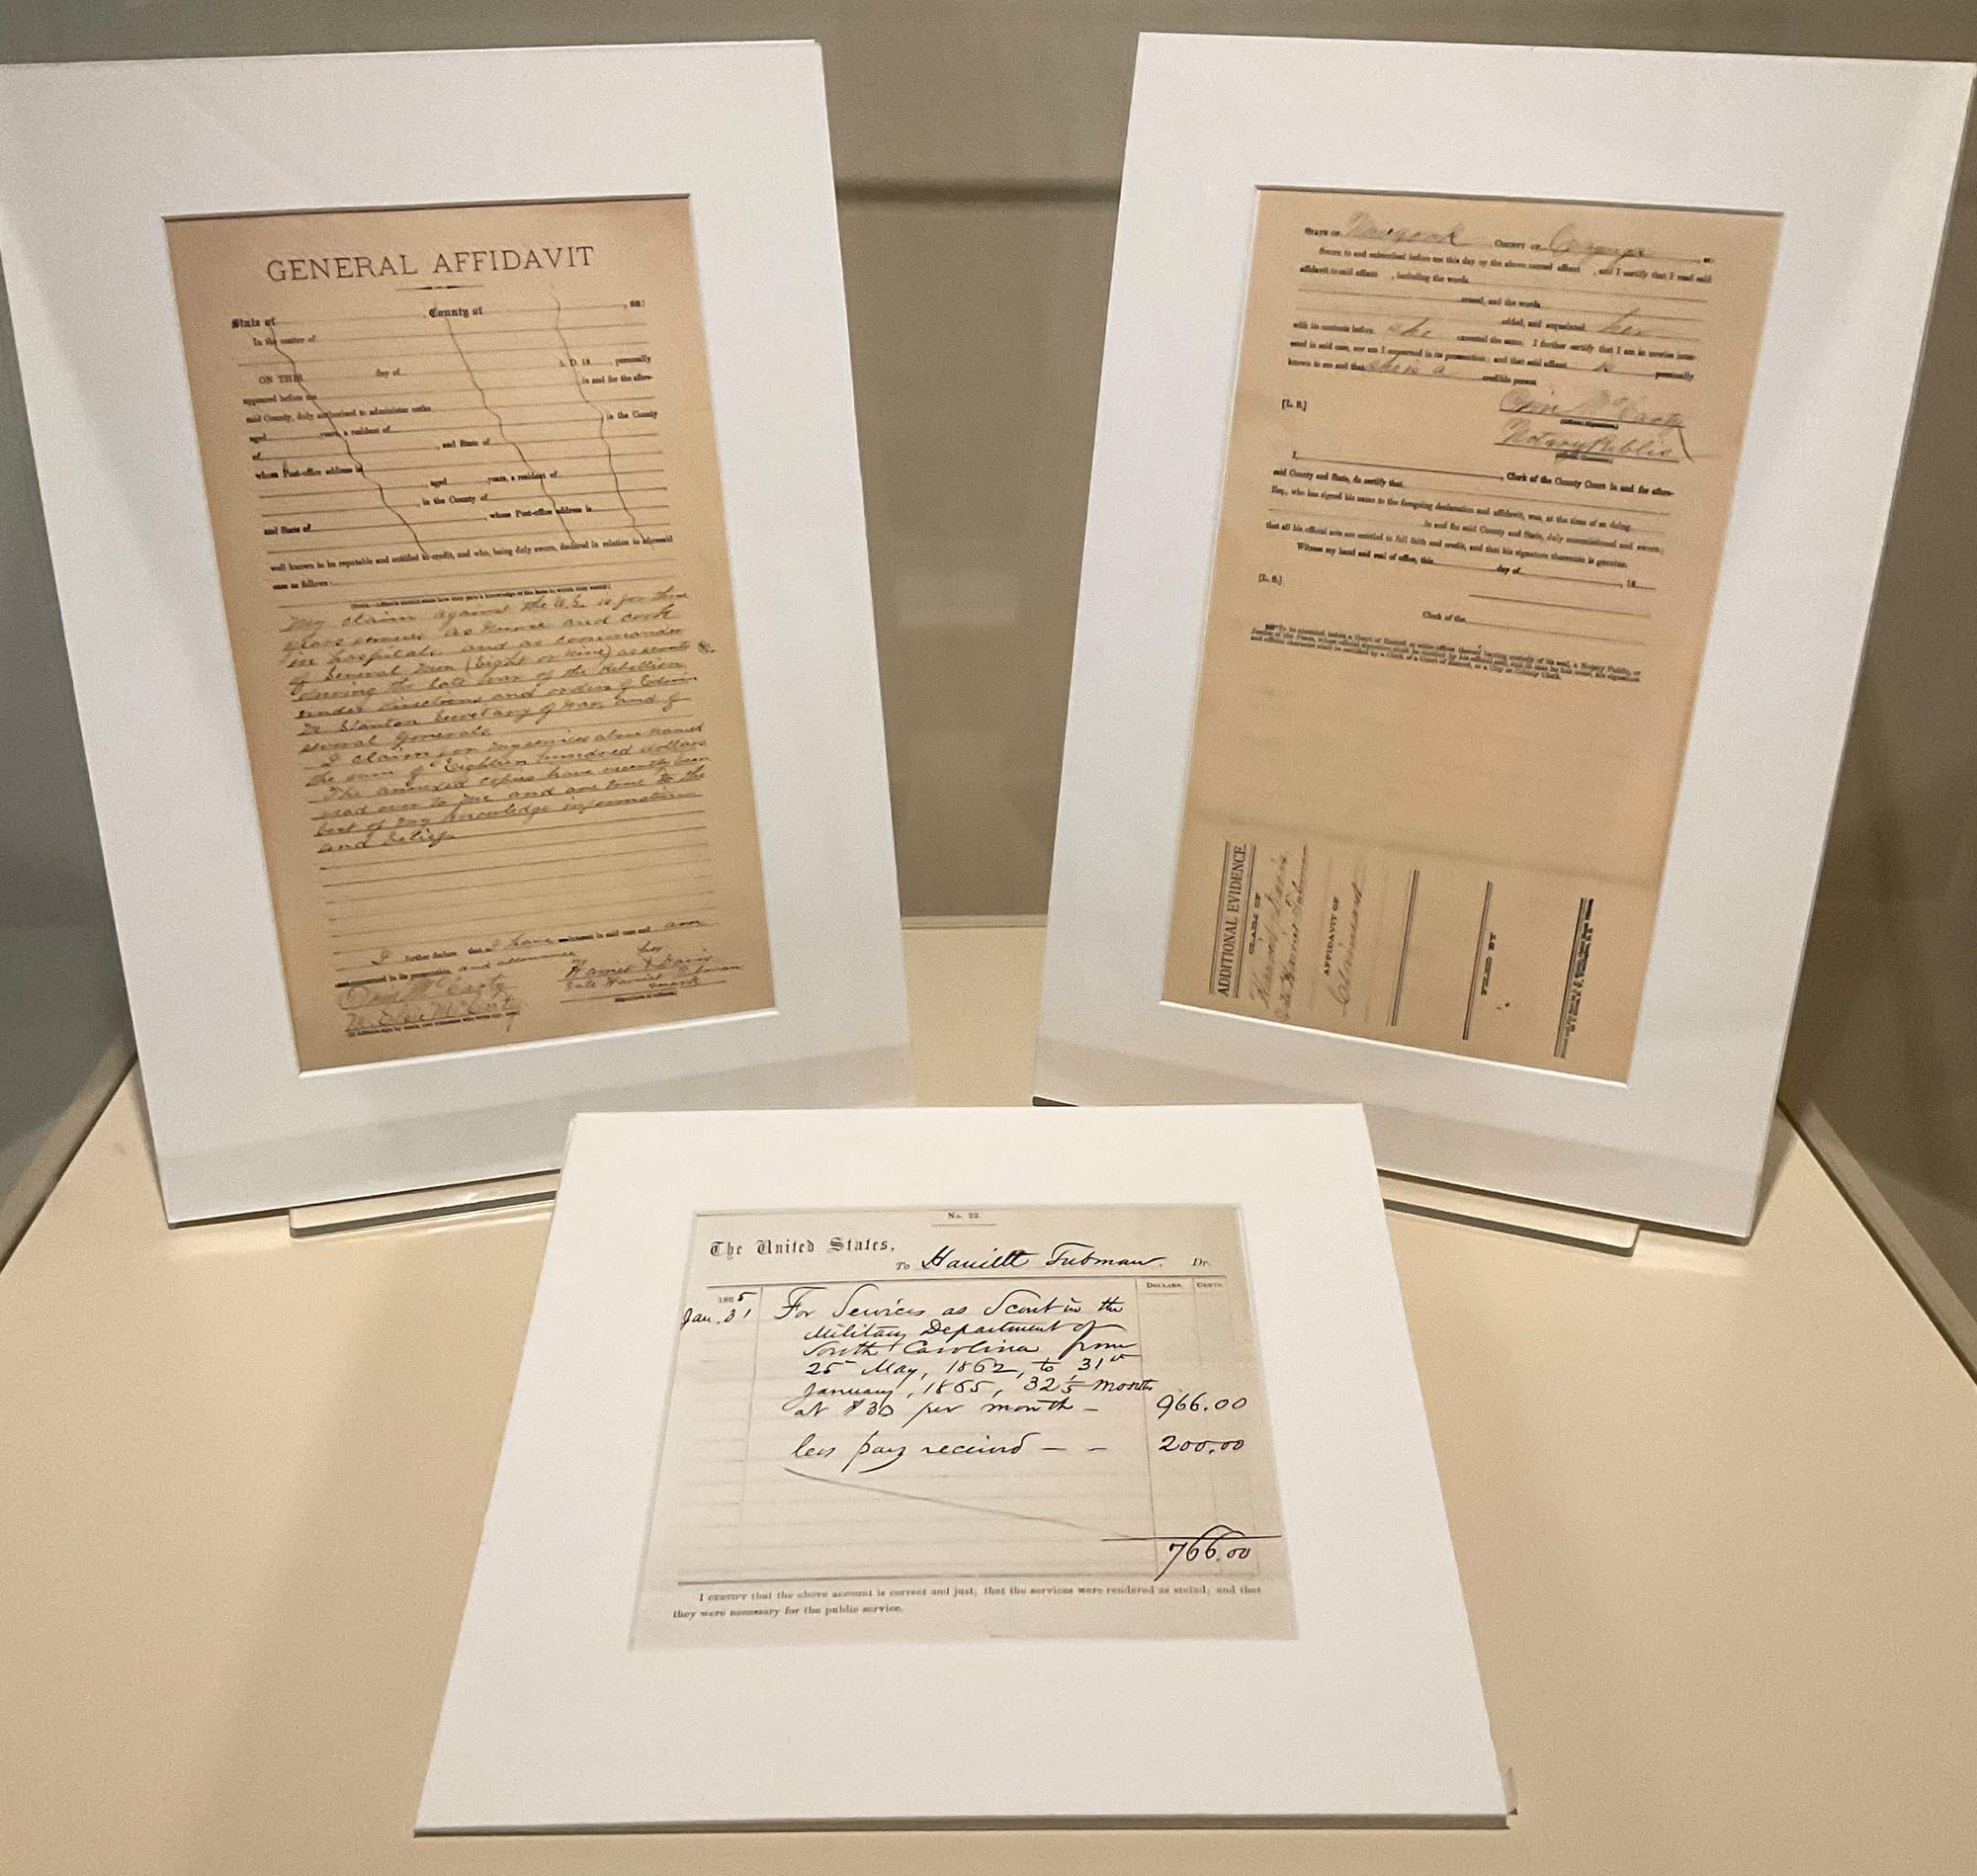 GENERAL AFFIDAVIT
State of County of , 188
In the matter of
ON THIS day of A. D. 18 personally
appeared before me in and for the afore-
said County, duly authorized to administer oaths
aged years, a resident of in the County
of , and State of
whose Post-office address is
aged years, a resident of
, in the County of
and State of , whose Post-office address is
well known to be reputable and entitled to credit, and who, being duly sworn, declared in relation to aforesaid
case as follows:
My claim against the U.S. is for three
years services as nurse and cook
in hospitals, and as commander
of Several men (Eight or Nine) as scouts
during the late war of the Rebellion
under directions and orders of Edwin
M. Stanton Secretary of War, and of
several Generals.
I claim for my services above named
the sum of Eighteen hundred dollars
The annexed copies have recently been
read over to me and are true to the
best of my knowledge information
and belief
I further declare that I have interest in said case and am
concerned in its prosecution, and allowance
her
Harriet X Davis
late Harriet Tubman
mark
Orin McCarty
McCarty
STATE OF New york COUNTY OF Cayuga , ss:
Sworn to and subscribed before me this day by the above-named affiant , and I certify that I read said
affidavit to said affiant , including the words
erased, and the words
added, and acquainted her
with its contents before she executed the same. I further certify that I am in nowise inter-
ested in said case, nor am I concerned in its prosecution; and that said affiant is personally
known to me and that she is a credible person
[L. S.]
Orin McCarty
(Official Signature.)
Notary Public
I, , Clerk of the County Court in and for afore-
said County and State, do certify that
Esq., who has signed his name to the foregoing declaration and affidavit, was, at the time of so doing
in and for said County and State, duly commissioned and sworn;
that all his official acts are entitled to full faith and credit, and that his signature thereunto is genuine.
Witness my hand and seal of office, this day of , 18
[L. S.]
Clerk of the
ADDITIONAL EVIDENCE
CLAIM OF
Harriet Davis
late Harriet Tubman
AFFIDAVIT OF
Claimant
FILED BY
No. 22.
The United States,
To Hariett Tubman. Dr.
DOLLARS. CENTS.
1865
Jan. 31 For Services as Scout in the
Military Department of
South Carolina from
25 May, 1862, to 31st
January, 1865, 32 1/5 months
at $30 per month – 966.00
less pay received – – 200.00
766.00
I CERTIFY that the above account is correct and just; that the services were rendered as stated; and that
they were necessary for the public service.